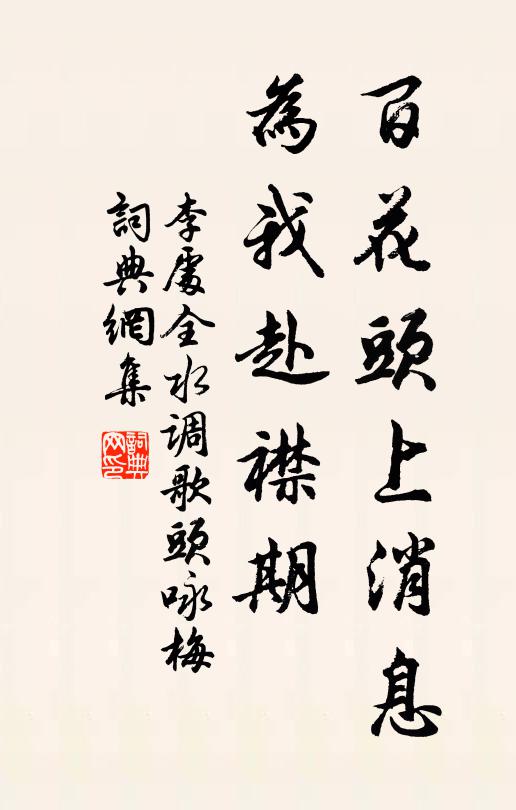 百花頭上消息
為我赴襟期
李處全水调歌頭咏梅
詞典網集
詞典网印